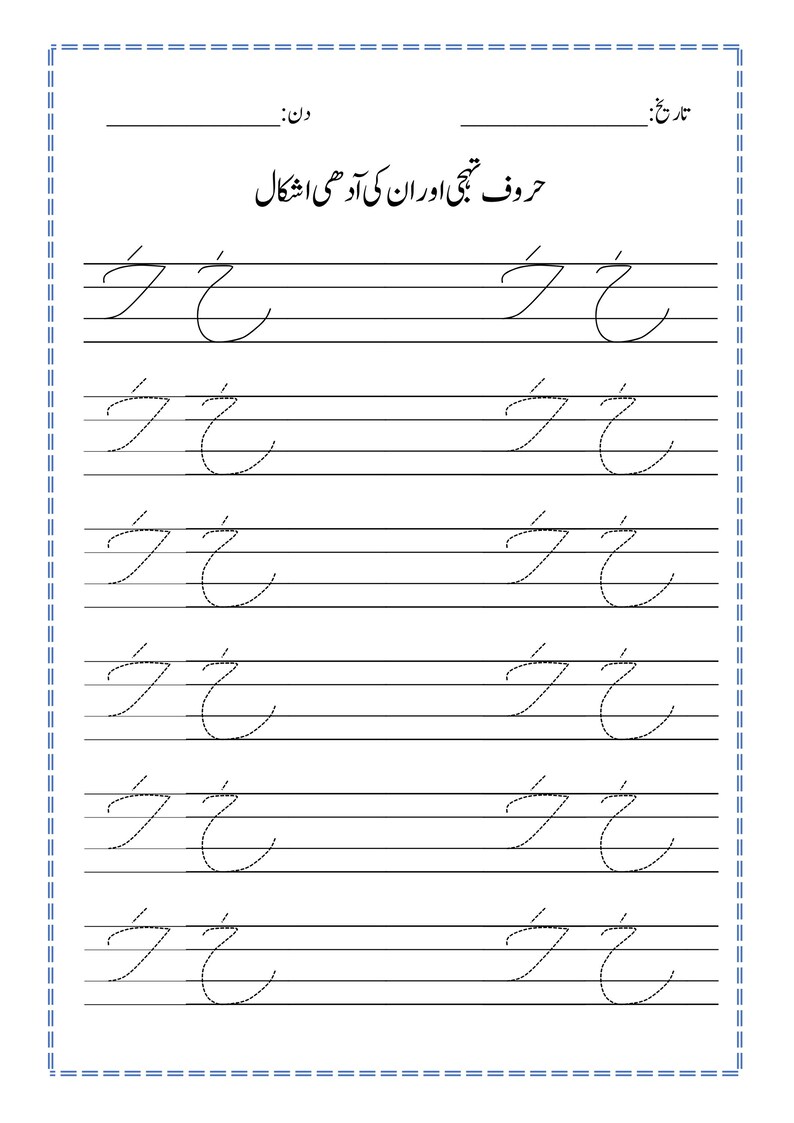 تاریخ: ____________ دن: ____________
حروف تہجی اور ان کی آدھی اشکال
خ خـ خ خـ
خ خـ خ خـ
خ خـ خ خـ
خ خـ خ خـ
خ خـ خ خـ
خ خـ خ خـ